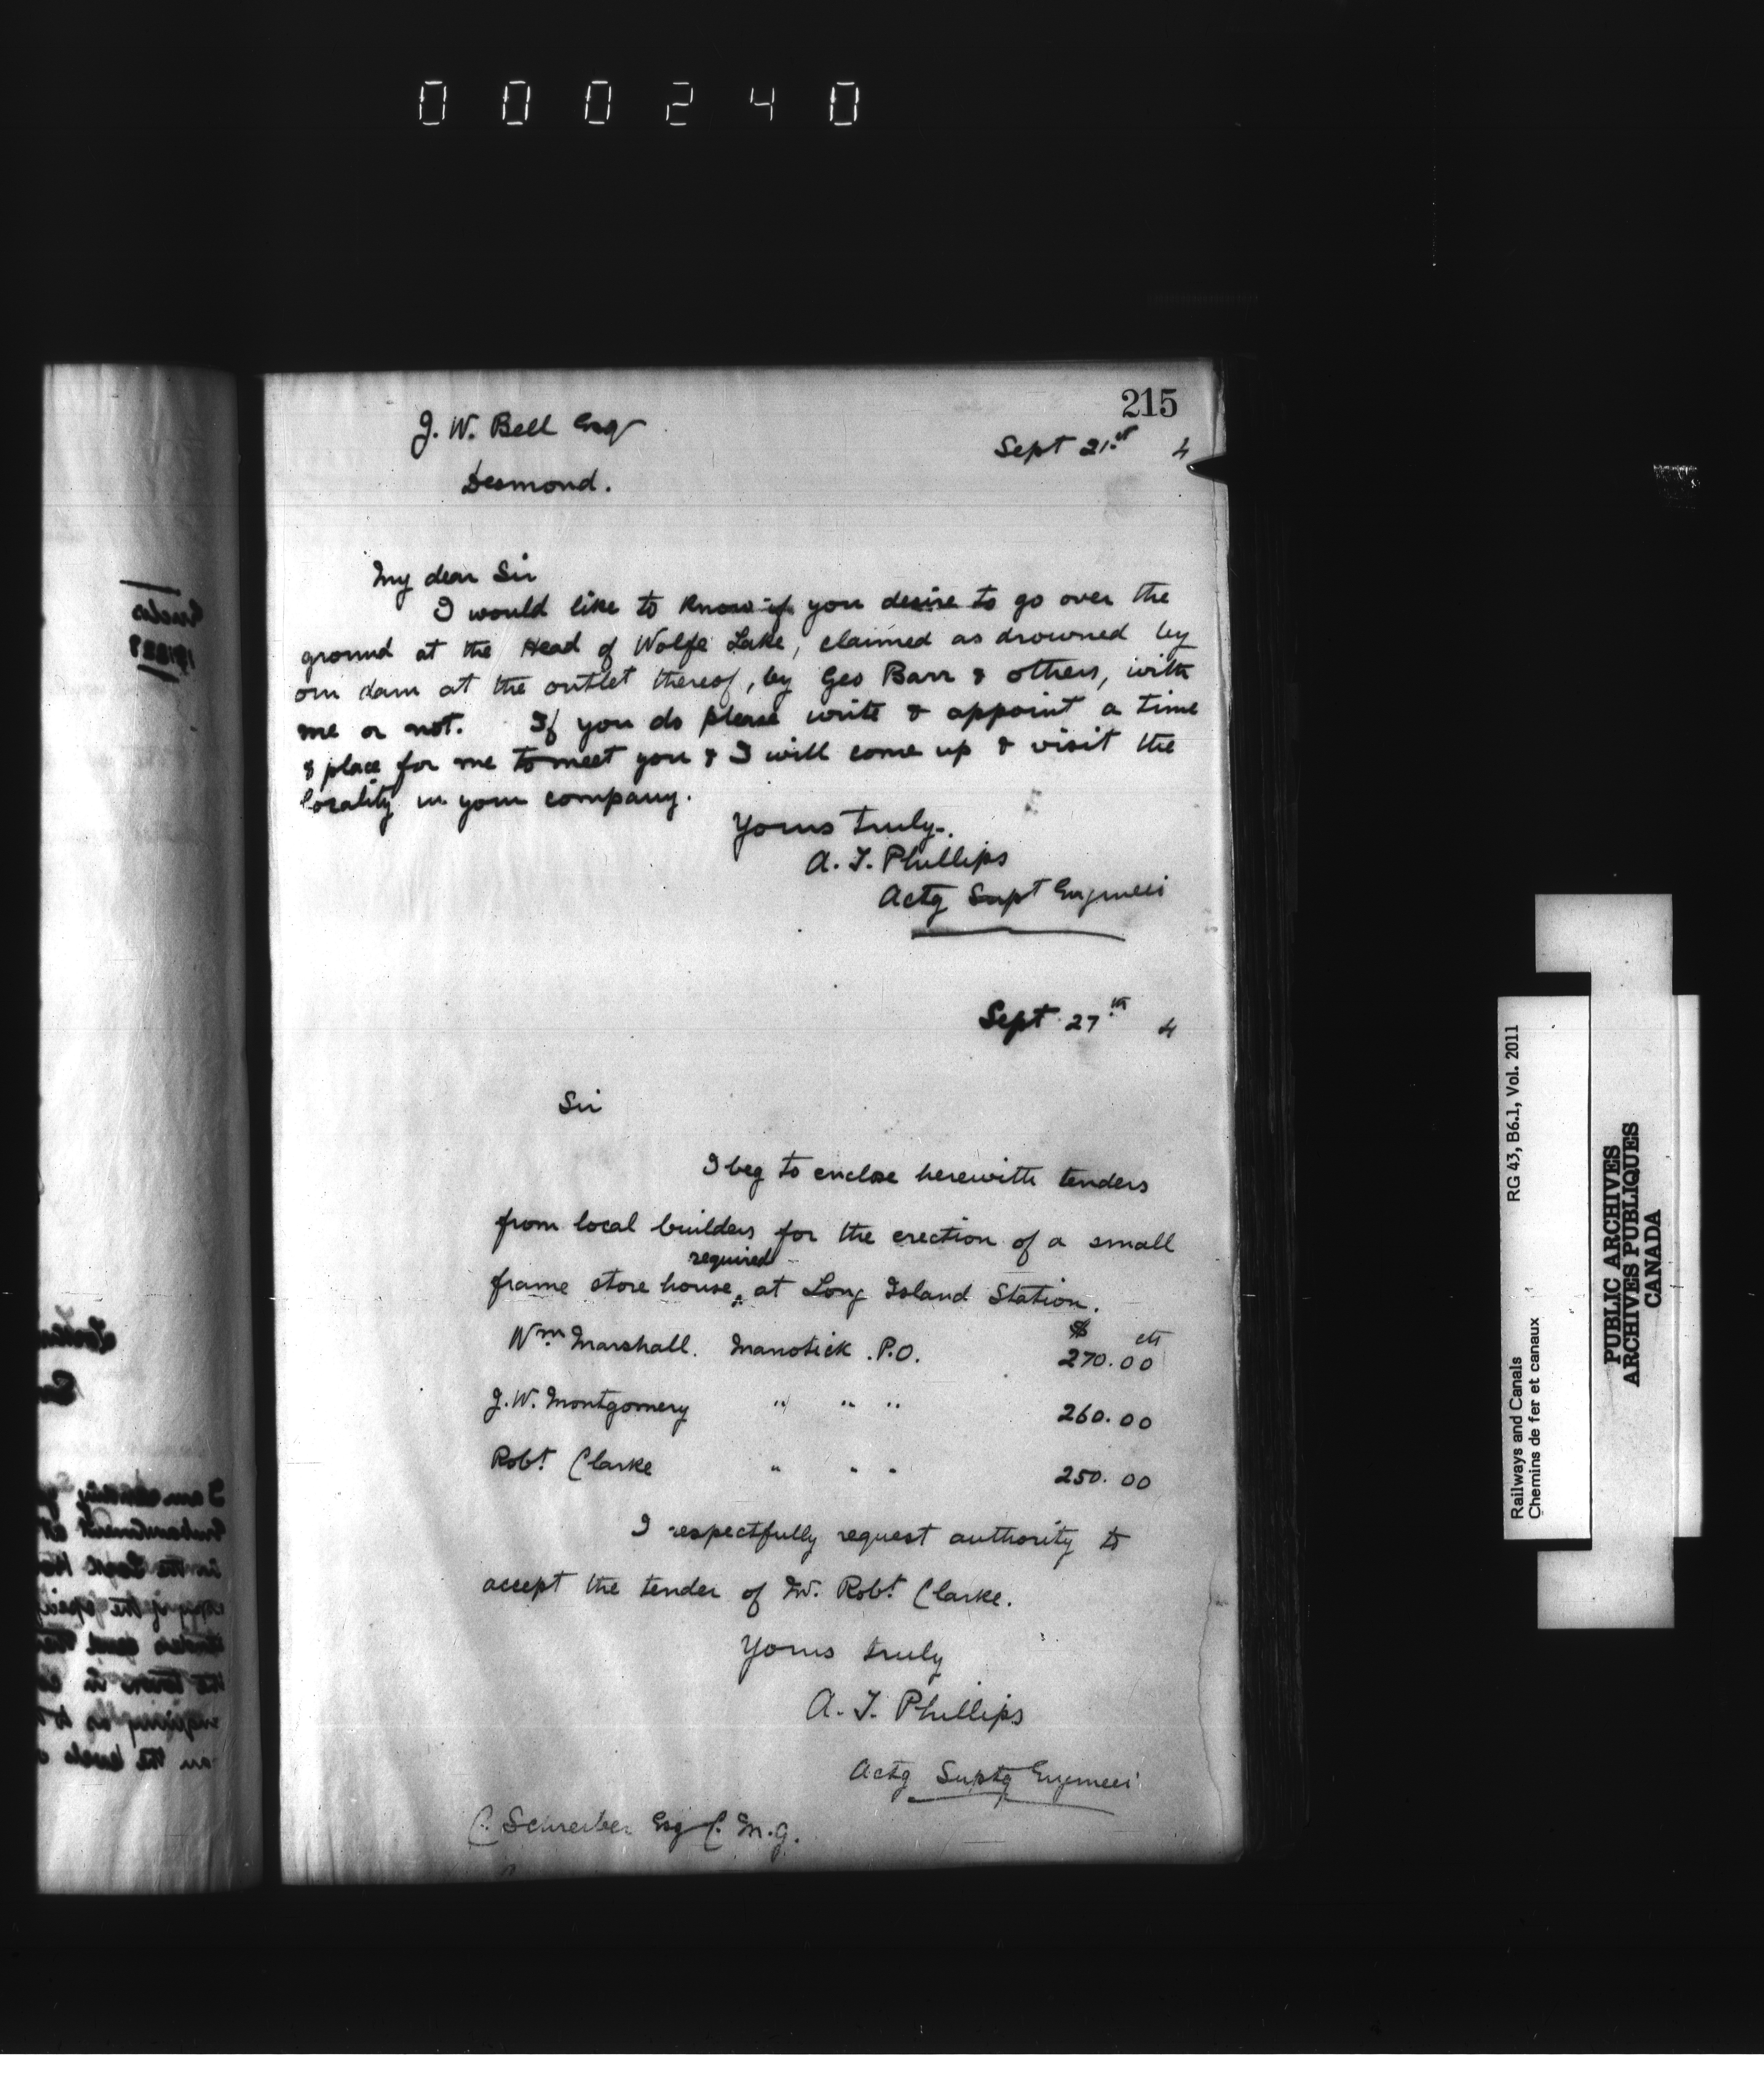 000240
215
J. W. Bell Esq
Sept 21st 4
Desmond.
My dear Sir
I would like to know if you desire to go over the
ground at the Head of Wolfe Lake, claimed as drowned by
our dam at the outlet thereof, by Geo Barr & others, with
me or not. If you do please write & appoint a time
& place for me to meet you & I will come up & visit the
locality in your company.
Yours truly.
A. T. Phillips
Actg Supt Engineer
Sept 27th 4
Sir
I beg to enclose herewith tenders
from local builders for the erection of a small
required
frame store house, at Long Island Station.
$ cts
Wm Marshall. Manotick P.O. 270.00
J. W. Montgomery " " " 260.00
Robt Clarke " " " 250.00
I respectfully request authority to
accept the tender of Mr. Robt Clarke.
Yours truly
A. T. Phillips
Actg Suptg Engineer
C. Schreiber Esq C. M. G.
Railways and Canals RG 43, B6.1, Vol. 2011
Chemins de fer et canaux
PUBLIC ARCHIVES
ARCHIVES PUBLIQUES
CANADA